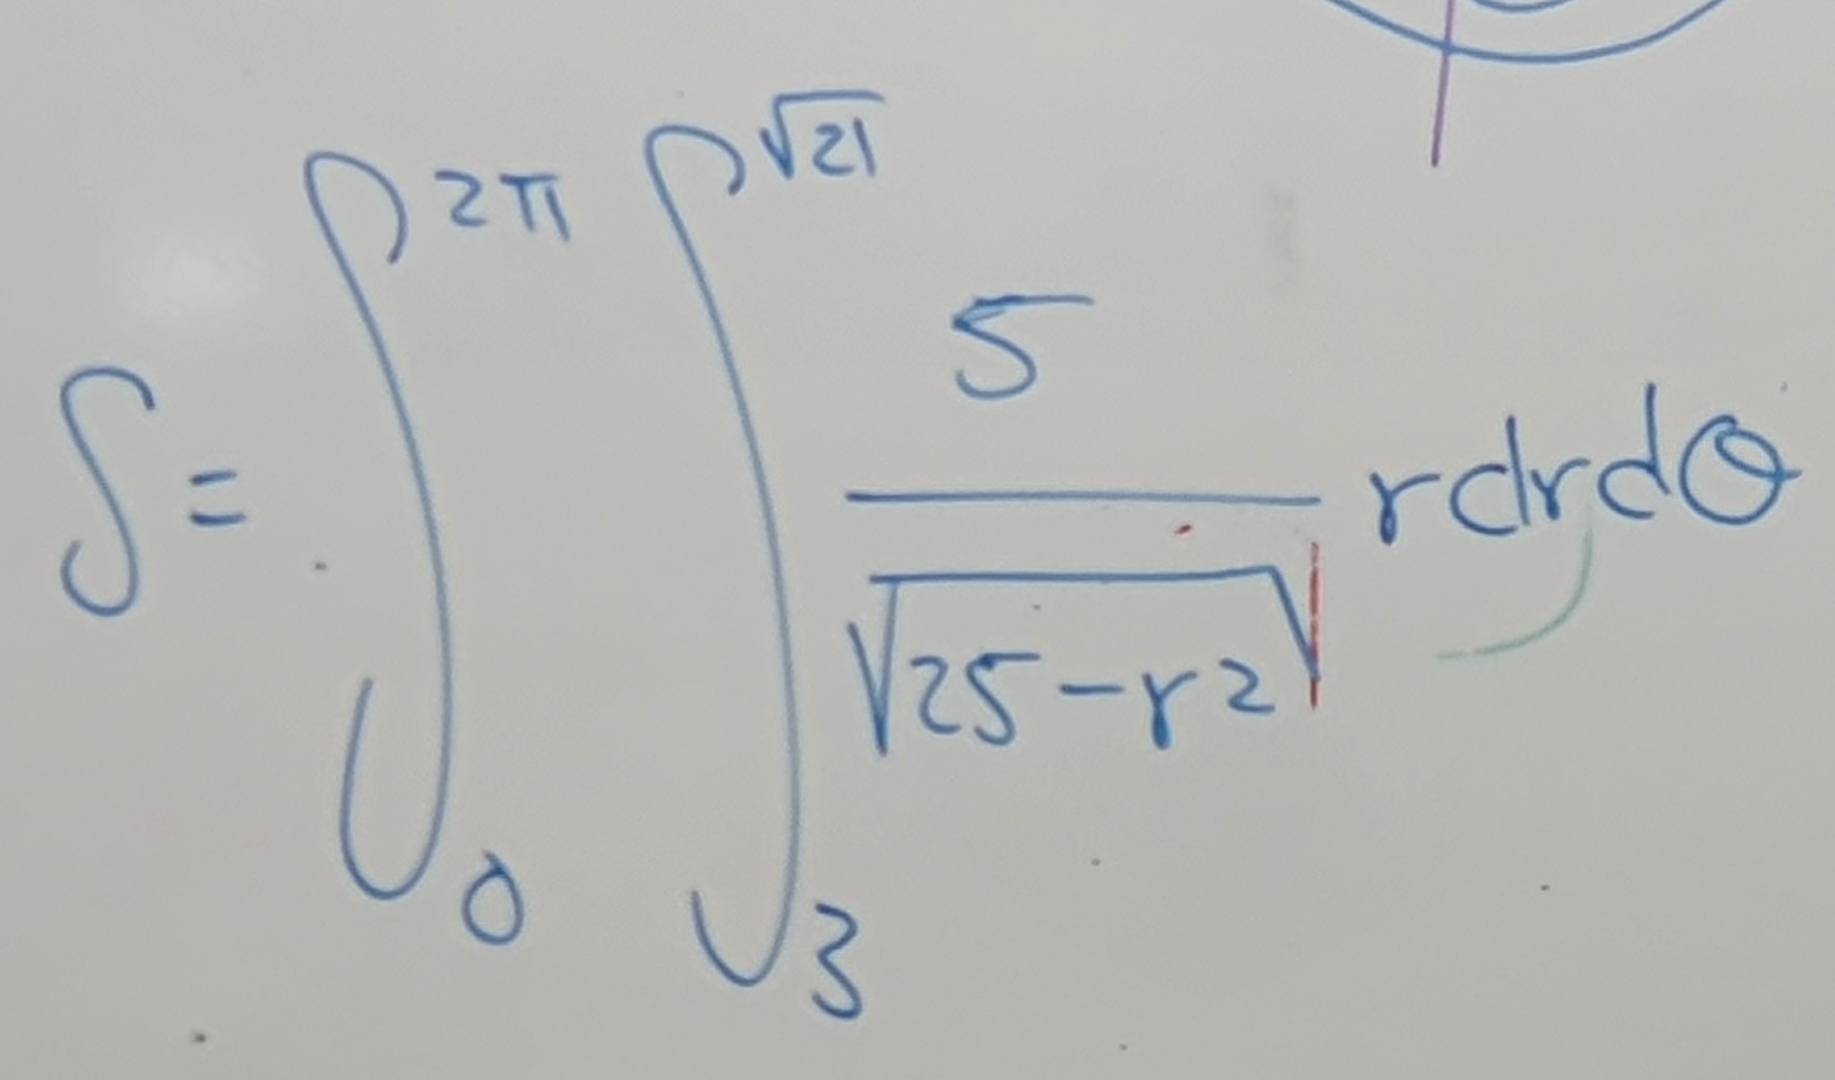 S = ∫_0^{2π} ∫_3^{√21} 5/√(25-r²) r dr dθ